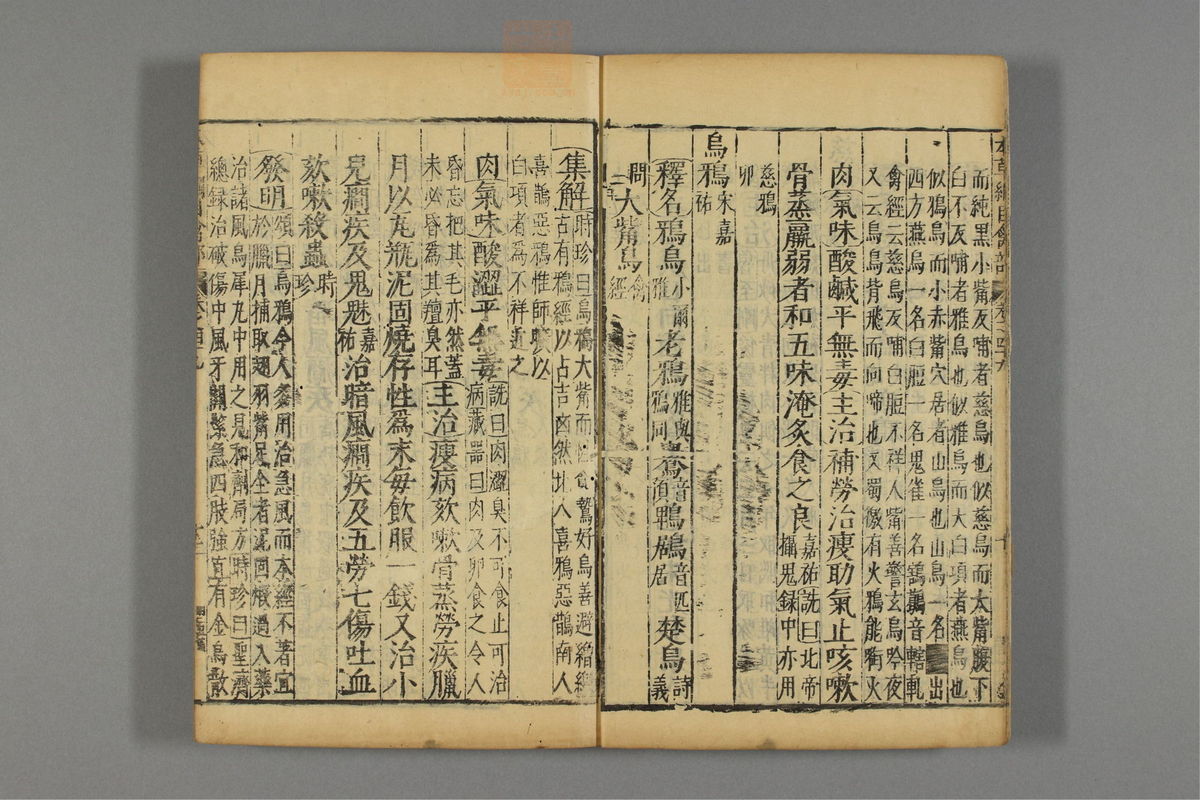 而純黑小觜反哺者慈烏也似慈烏而大觜腹下
白不反哺者雅烏也似雅烏而大白項者燕烏也
似鴉烏而小赤觜穴居者山烏也山烏一名出
西方燕烏一名白脰一名鬼雀一名鶷𪇰音轄軋
禽經云慈烏反哺白脰不祥人觜善警玄烏吟夜
又云烏鳥背飛而向啼也又蜀徼有火鴉能銜火
肉氣味酸鹹平無毒主治補勞治瘦助氣止咳嗽
骨蒸羸弱者和五味淹炙食之良嘉祐詵曰北帝
攝鬼録中亦用
慈鴉
卵
烏鴉宋嘉
祐
釋名鴉烏小爾
雅老鴉雅與
鴉同鸒音預鵯鶋音匹
居楚烏詩義
問大觜烏禽
經
集解時珍曰烏鴉大觜而性貪鷙好鳥善避繒繳
古有鴉經以占吉凶然北人喜鴉惡鵲南人
喜鵲惡鴉惟師曠以
白項者為不祥近之
肉氣味酸澀平無毒詵曰肉澀臭不可食止可治
病藏器曰肉及卵食之令人
昏忘把其毛亦然蓋
未必昏為其羶臭耳主治瘦病欬嗽骨蒸勞疾臘
月以瓦瓶泥固燒存性為末每飲服一錢又治小
兒癇疾及鬼魅嘉
祐治暗風癇疾及五勞七傷吐血
欬嗽殺蟲時
珍
發明頌曰烏鴉今人多用治急風而本經不著宜
於臘月捕取翅羽觜足全者泥固煅過入藥
治諸風烏犀丸中用之見和劑局方時珍曰聖濟
總録治破傷中風牙關緊急四肢強直有金烏散